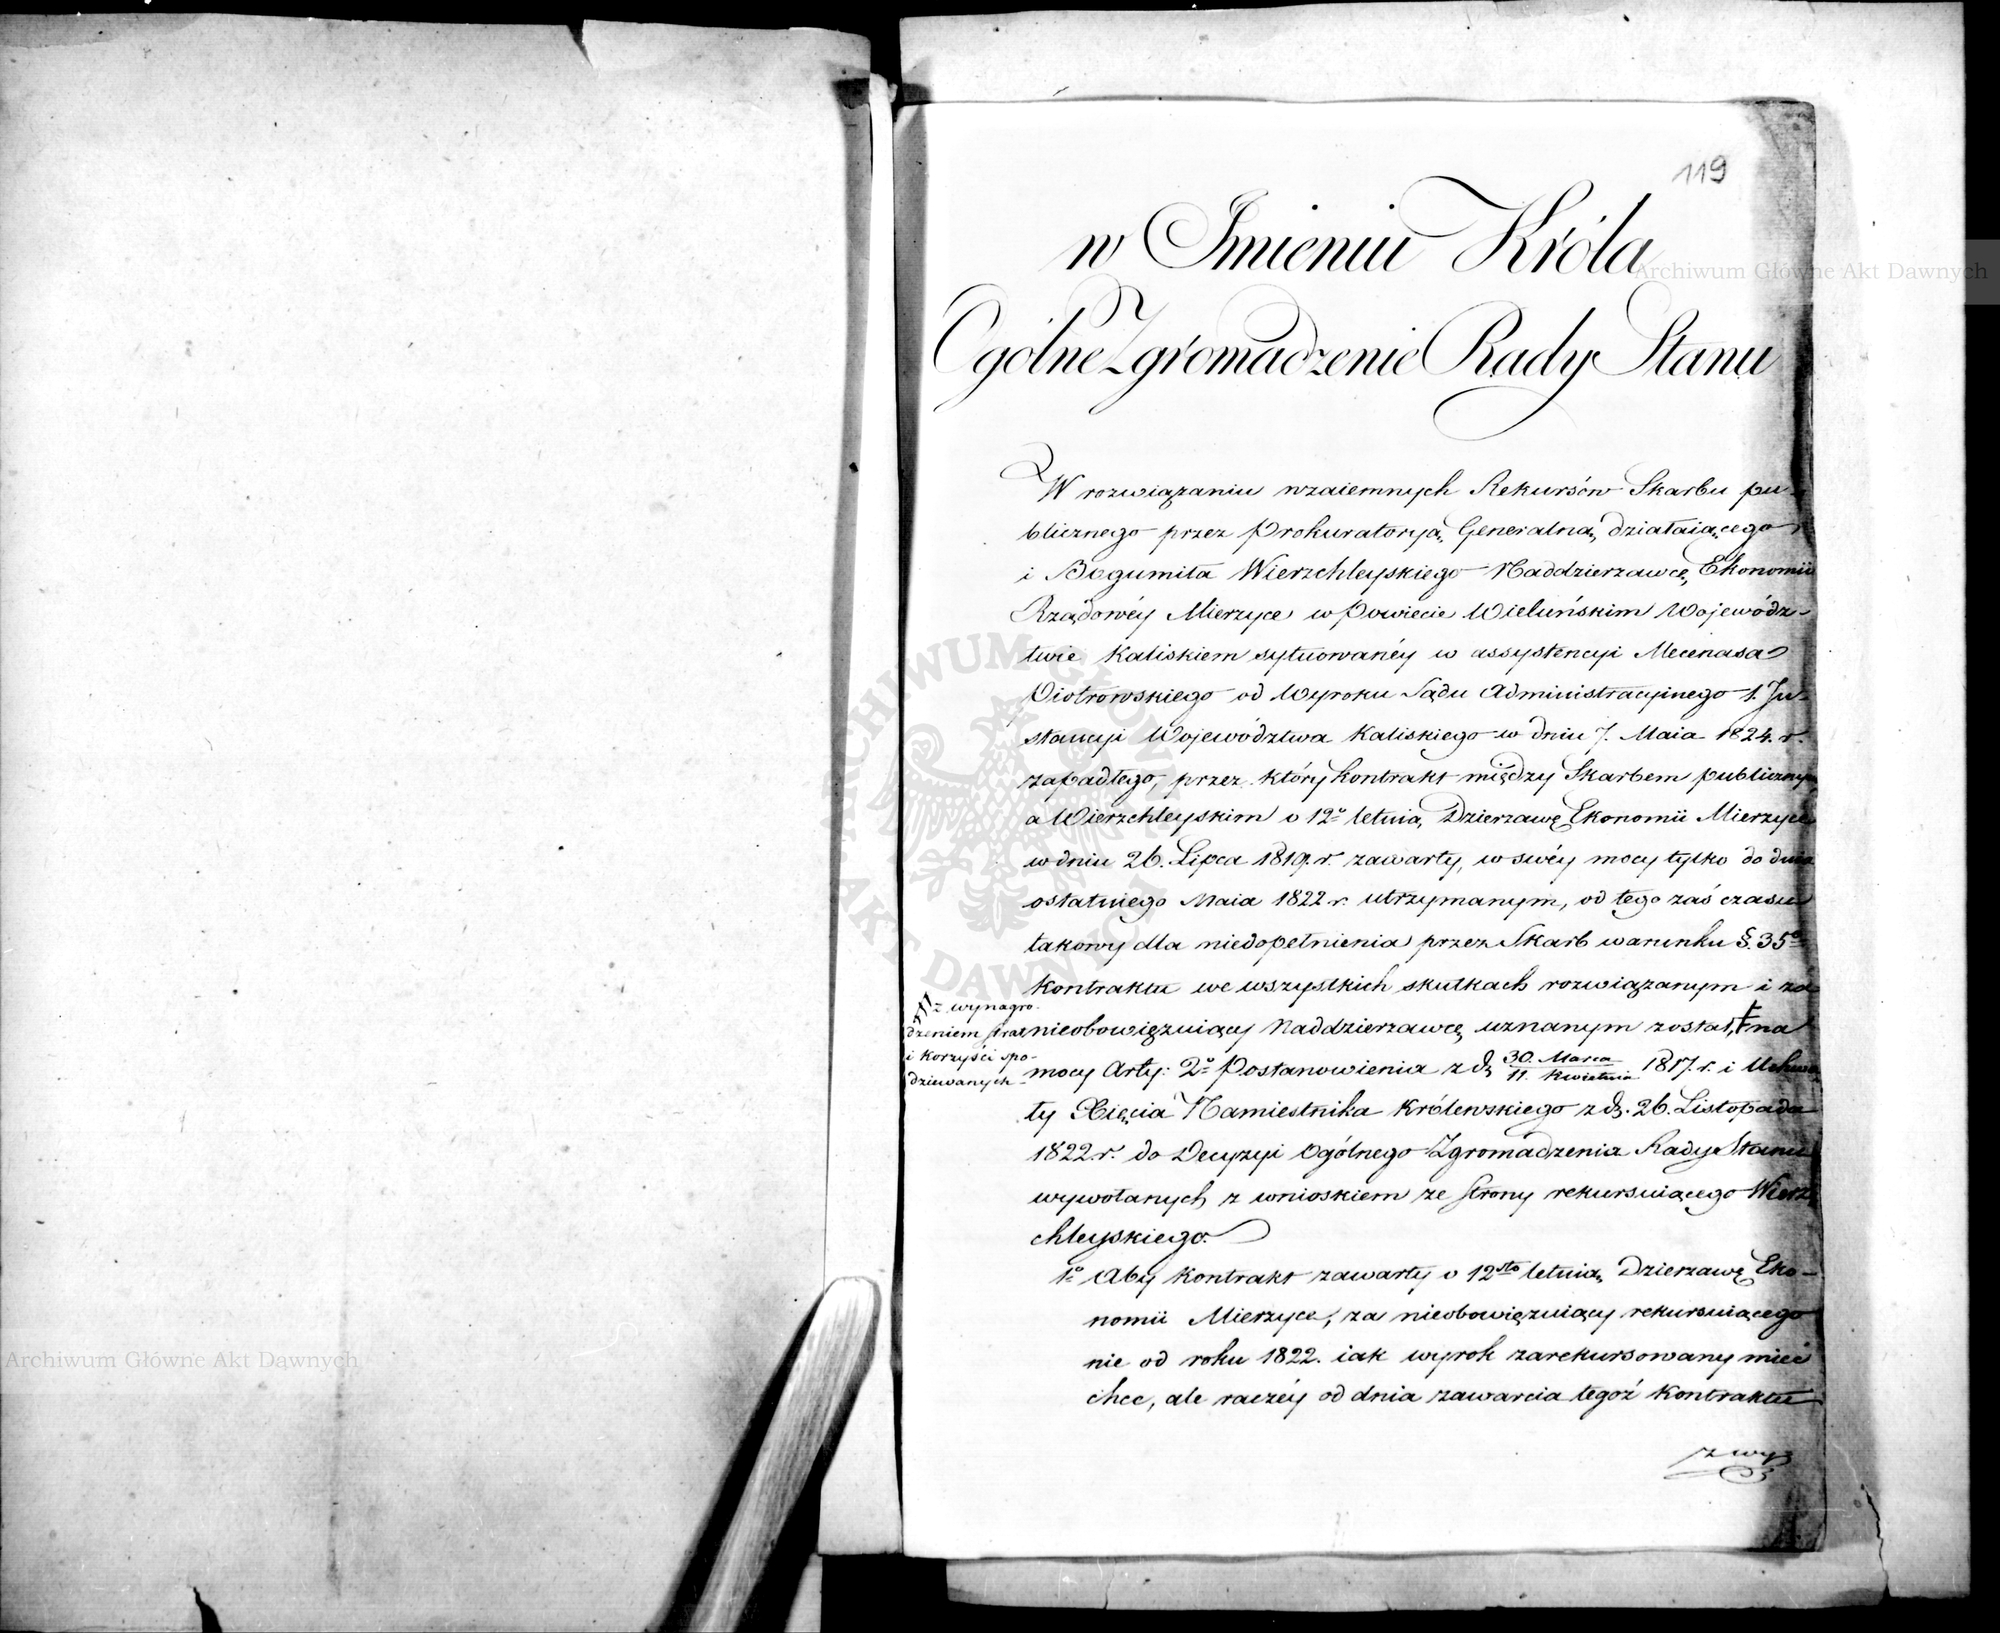 119
w Imieniu Króla
Ogólne Zgromadzenie Rady Stanu
W rozwiązaniu wzaiemnych Rekursów Skarbu pu-
blicznego przez Prokuratoryą Generalną działaiącego
i Bogumiła Wierzchleyskiego Naddzierzawcę Ekonomii
Rządowéy Mierzyce w Powiecie Wieluńskim Wojewódz-
twie Kaliskiem sytuowanéy w assystencyi Mecenasa
Piotrowskiego od Wyroku Sądu Administracyinego 1. In-
stancyi Województwa Kaliskiego w dniu 7. Maia 1824. r.
zapadłego, przez który kontrakt między Skarbem publicznym
a Wierzchleyskim o 12º letnią Dzierzawę Ekonomii Mierzyce
w dniu 26. Lipca 1819. r. zawarty, w swéy mocy tylko do dnia
ostatniego Maia 1822 r. utrzymanym, od tego zaś czasu
takowy dla niedopełnienia przez Skarb warunku §. 35º
kontraktu we wszystkich skutkach rozwiązanym i za
nieobowięzuiący Naddzierzawcę uznanym został, ǂ na
ǂ z wynagro-
dzeniem strat
i korzyści spo-
dziewanych
mocy Arty: 2º Postanowienia z d. 30. Marca / 11. Kwietnia 1817. r. i Uchwa
ły Xięcia Namiestnika Królewskiego z d. 26. Listopada
1822. r. do Decyzyi Ogólnego Zgromadzenia Rady Stanu
wywołanych z wnioskiem ze strony rekursuiącego Wierz
chleyskiego.
1º Aby kontrakt zawarty o 12sto letnią Dzierzawę Eko-
nomii Mierzyce, za nieobowięzuiący rekursuiącego
nie od roku 1822. iak wyrok zarekursowany mieć
chce, ale raczéy od dnia zawarcia tegoż kontraktu
z wy
Archiwum Główne Akt Dawnych
Archiwum Główne Akt Dawnych
ARCHIWUM GŁÓWNE AKT DAWNYCH